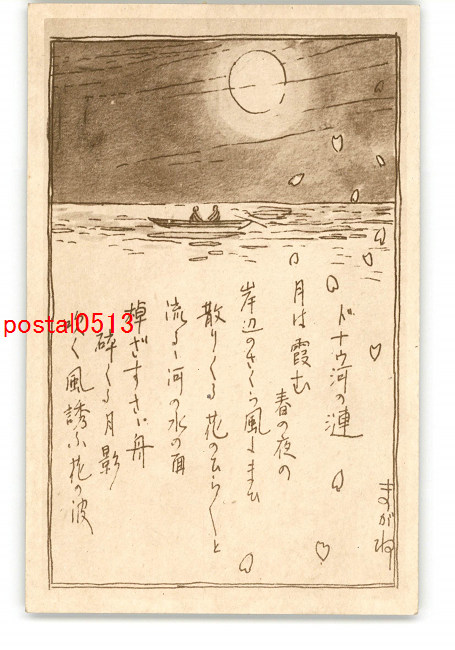 ドナウ河の漣
月は霞む
春の夜の
岸辺のさくら風にまひ
散りくる花のひら〳〵と
流るゝ河の水の面
棹さすさゝ舟
砕くる月影
く風誘ふ花の波
まがね
postal0513